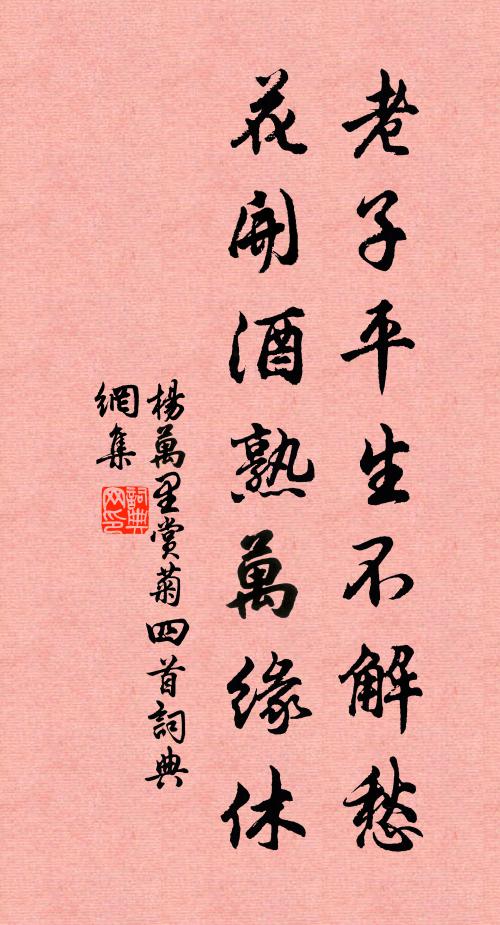 老子平生不解愁
花開酒熟萬緣休
楊萬里賞菊四首詞典
網集
詞典
网印